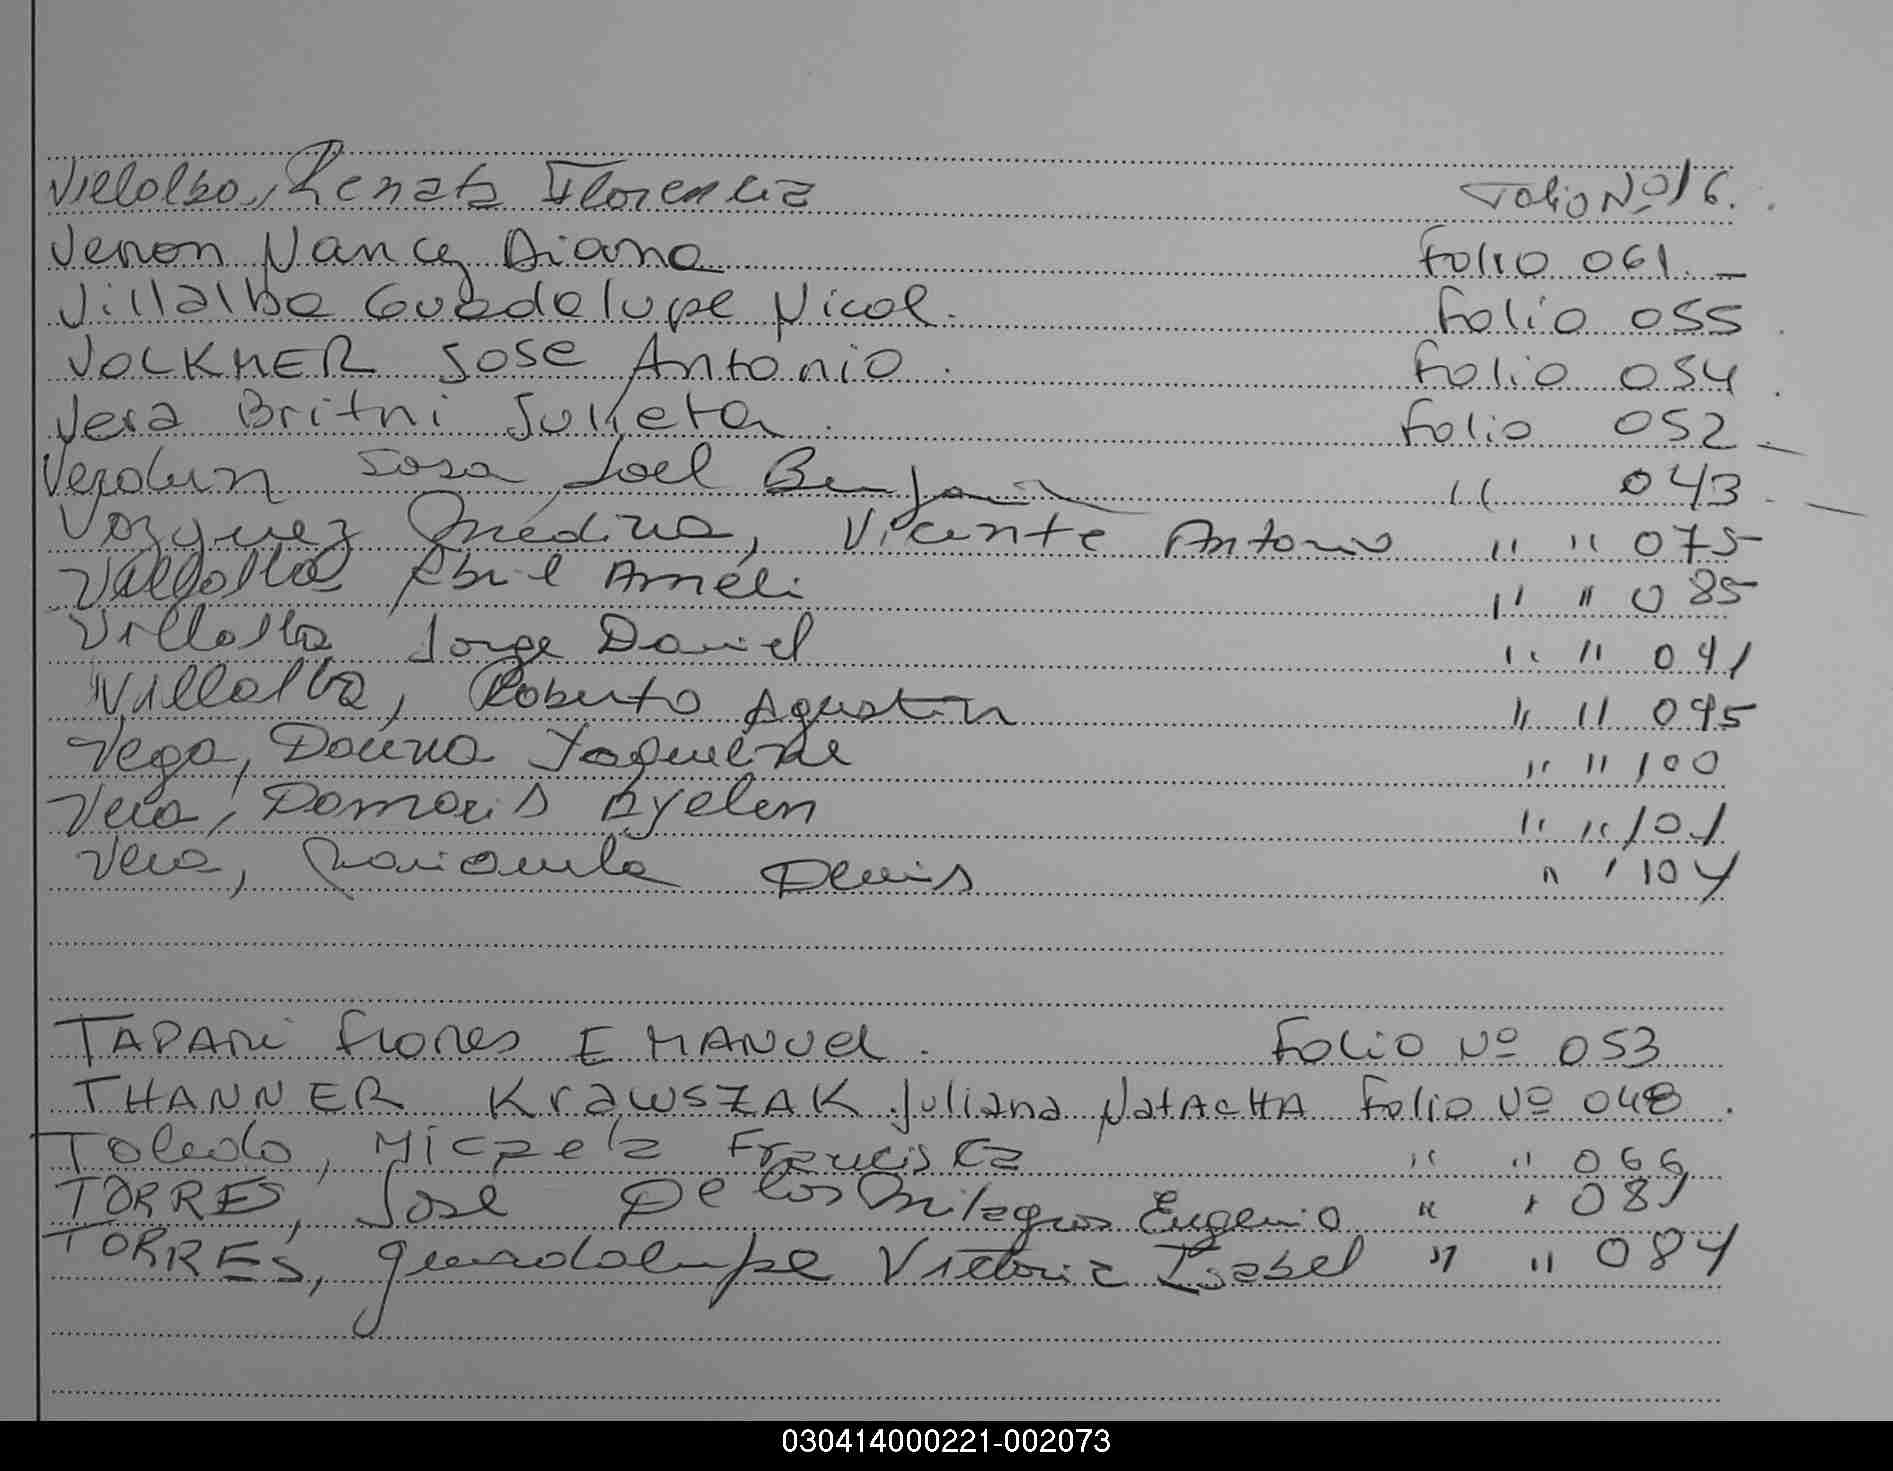 Villalba, Renata Florencia Folio Nº 16.
Veron Nancy Diana Folio 061. _
Villalba Guadalupe Nicol. Folio 055
VOLKMER Jose Antonio. Folio 054
Vera Britni Julieta. Folio 052
Verdun Sosa Joel Benjamin " 043
Vazquez Medina, Vicente Antonio " " 075
Villalba Abril Ameli " " 085
Villalba Jorge Daniel " " 091
Villalba, Roberto Agustin " " 095
Vega, Daiana " " 100
Vera, Damaris Ayelen " " 101
Vera, Denis " " 104
TAPARI flores EMANUEL. Folio Nº 053
THANNER KrawSZAK Juliana NatACHA Folio Nº 048.
Toledo, Micaela Francisca " " 066
TORRES, José De los Milagros Eugenio " " 081
TORRES, Guadalupe Victoria Isabel " " 084
030414000221-002073